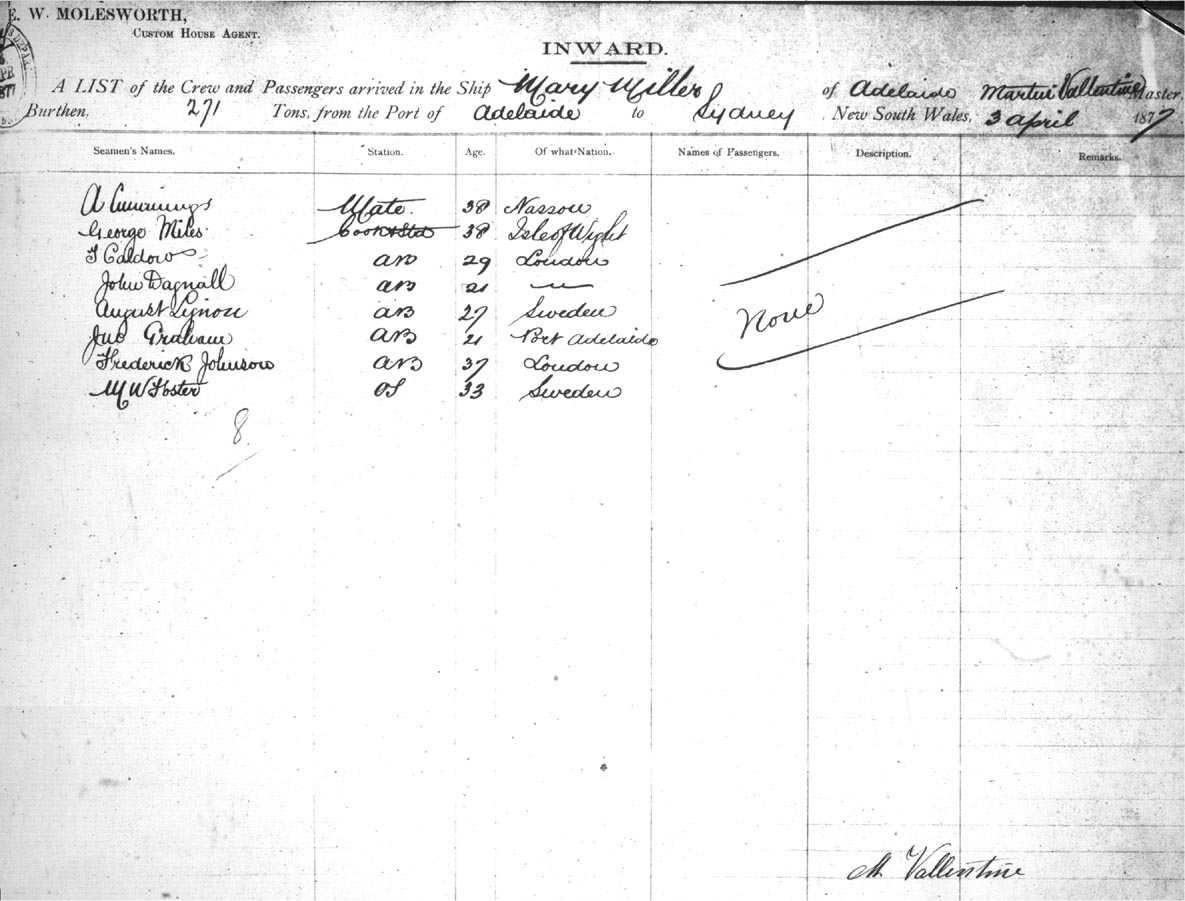 E. W. MOLESWORTH,
CUSTOM HOUSE AGENT.
INWARD.
A LIST of the Crew and Passengers arrived in the Ship Mary Miller of Adelaide Martin Vallentine Master,
Burthen, 271 Tons, from the Port of Adelaide to Sydney New South Wales, 3 April 1877
Seamen's Names. Station. Age. Of what Nation. Names of Passengers. Description. Remarks.
A Cummings Mate 38 Nassou
George Miles Cook & Std 38 Isle of Wight
Caldow AB 29 London
John Dagnall AB 21 —"—
August AB 27 Sweden
Jno Graham AB 21 Port Adelaide
Frederick Johnson AB 37 London
M W Foster OS 33 Sweden
None
8
M. Vallentine